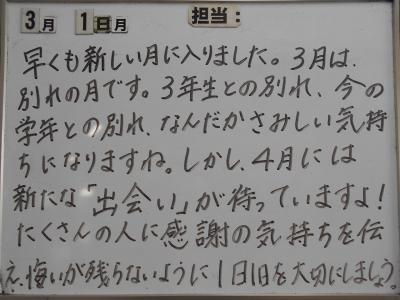 3月 1日月 担当:
早くも新しい月に入りました。3月は、
別れの月です。3年生との別れ、今の
学年との別れ、なんだかさみしい気持
ちになりますね。しかし、4月には
新たな「出会い」が待っていますよ!
たくさんの人に感謝の気持ちを伝
え、悔いが残らないように1日1日を大切にしましょう。